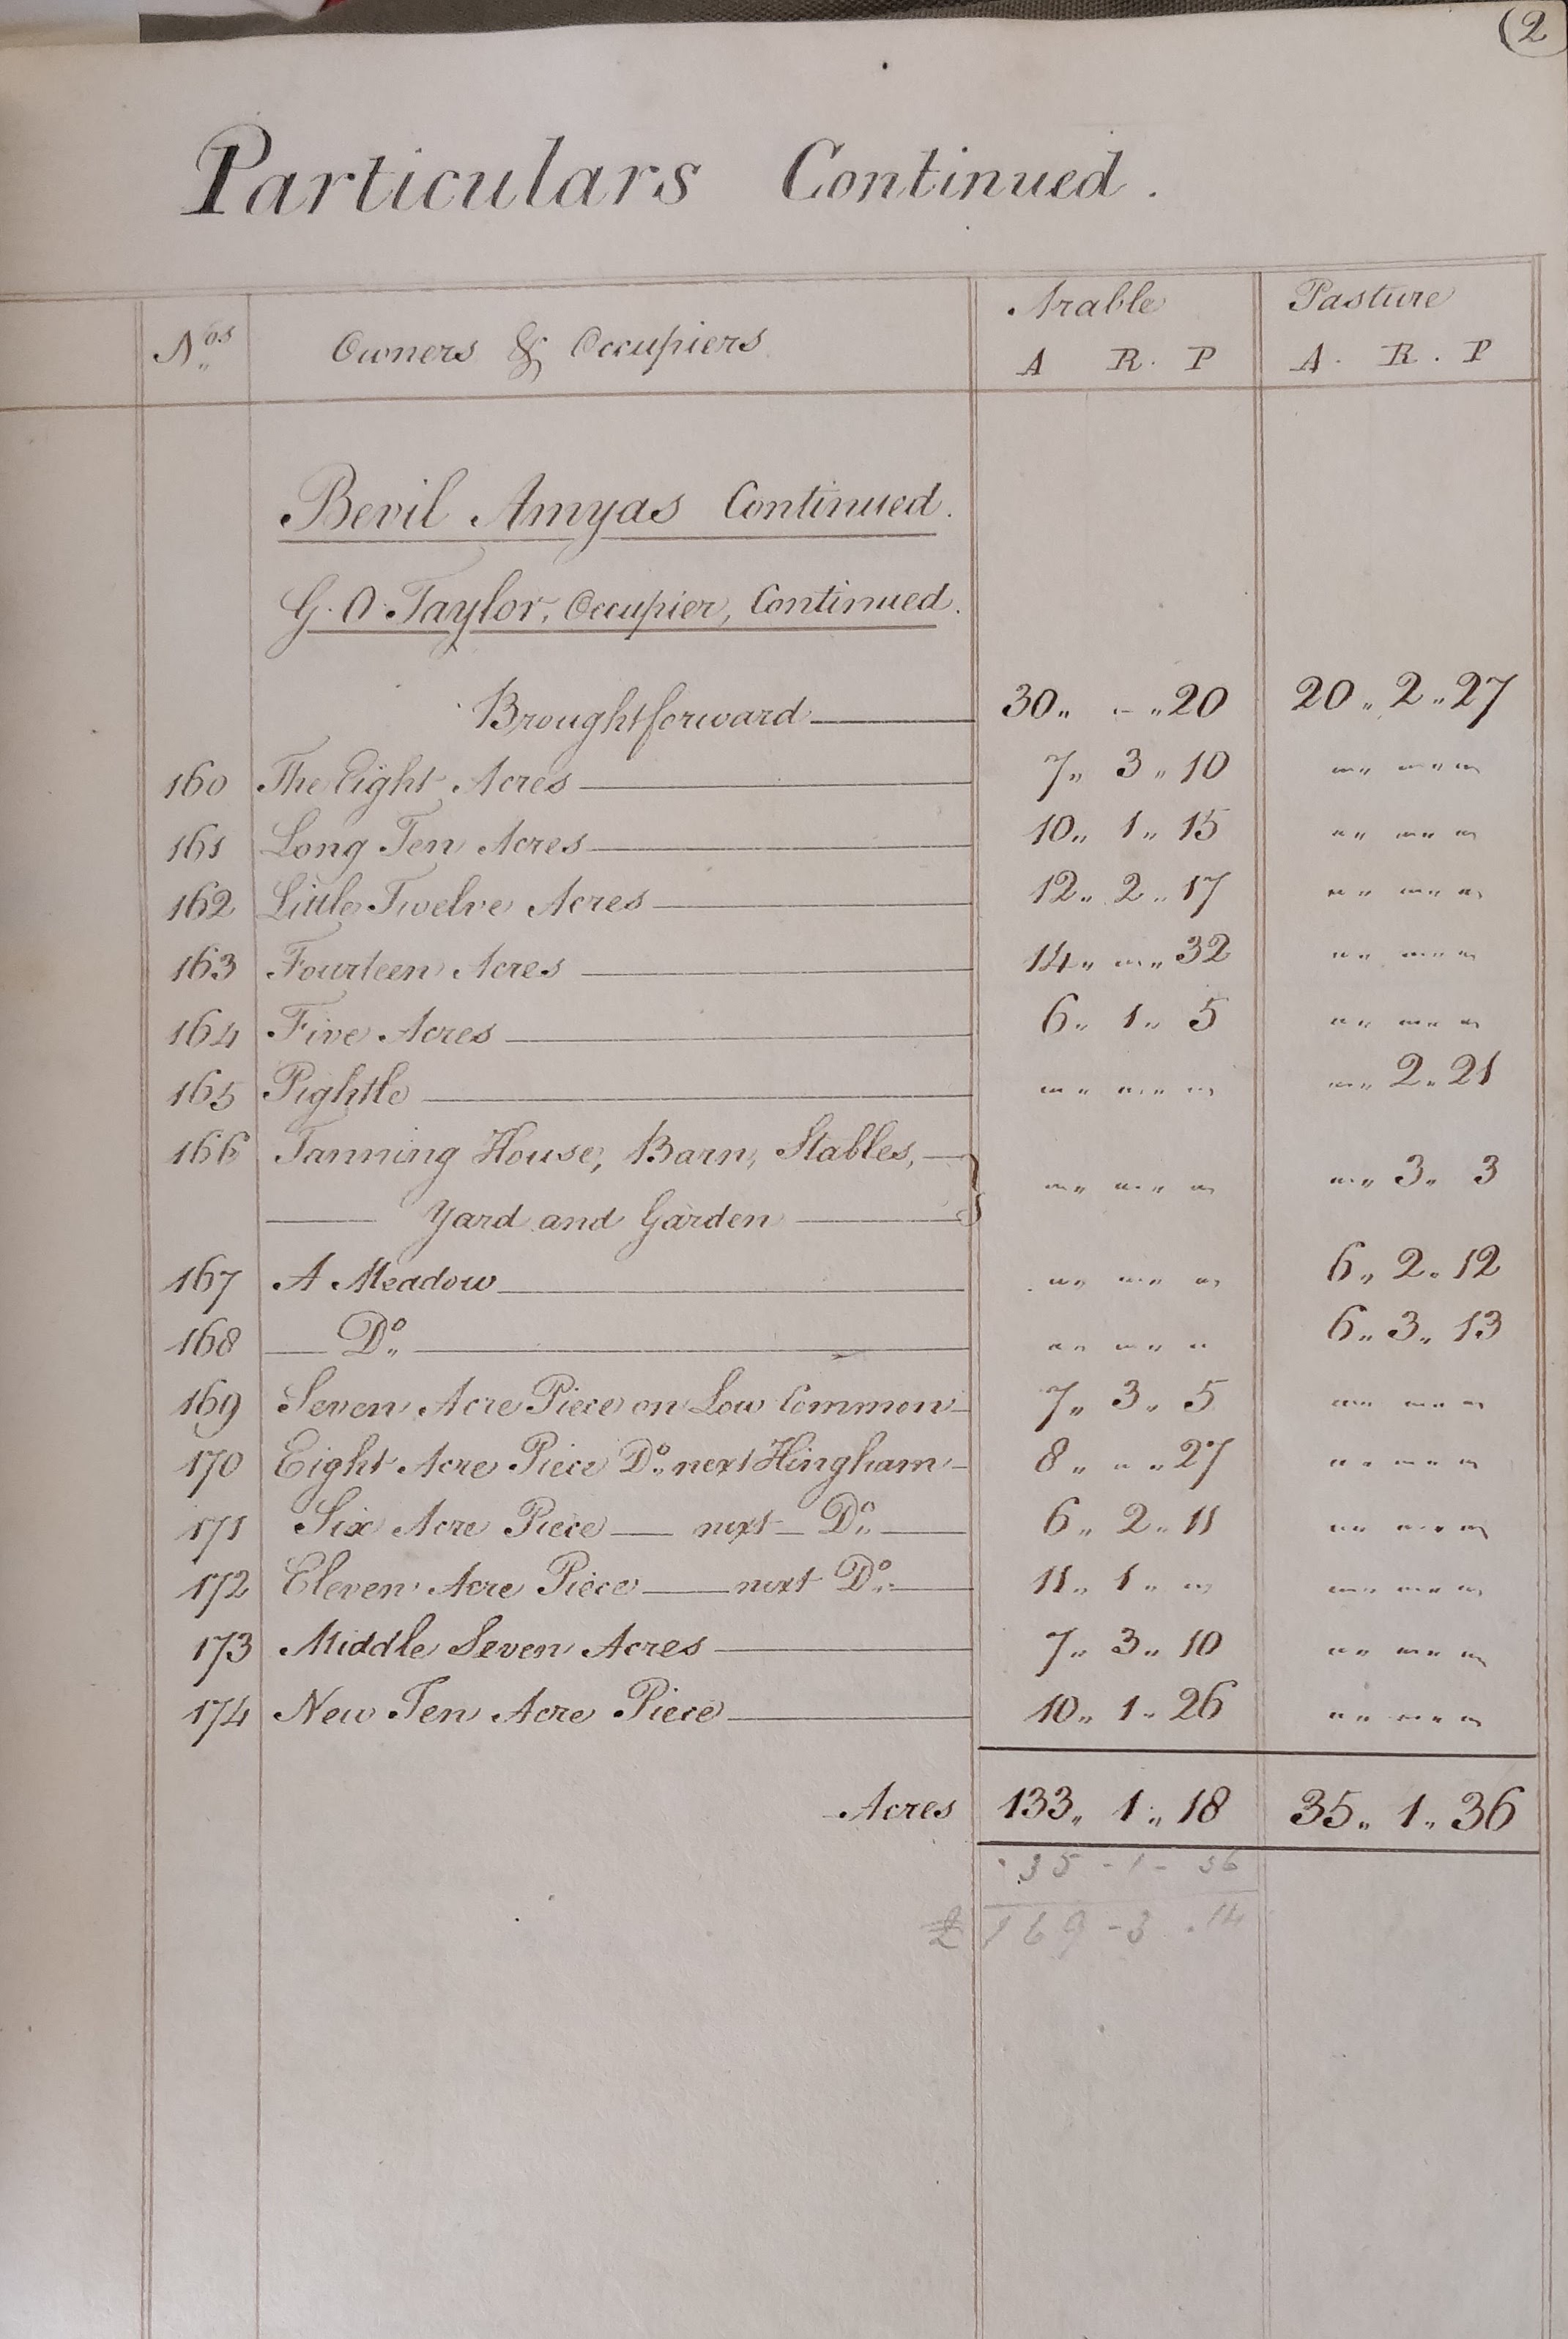 (2
Particulars Continued.
Nos Owners & Occupiers Arable Pasture
A R. P A. R. P
Bevil Amyas Continued.
G. O. Taylor, Occupier, Continued.
Broughtforward 30 „ - „ 20 20 „ 2 „ 27
160 The Eight Acres 7 „ 3 „ 10 „ „ „
161 Long Ten Acres 10 „ 1 „ 15 „ „ „
162 Little Twelve Acres 12 „ 2 „ 17 „ „ „
163 Fourteen Acres 14 „ „ 32 „ „ „
164 Five Acres 6 „ 1 „ 5 „ „ „
165 Pightle „ „ „ „ 2 „ 21
166 Tanning House, Barn, Stables, „ „ „ „ 3 „ 3
Yard and Garden
167 A Meadow „ „ „ 6 „ 2 „ 12
168 Do „ „ „ 6 „ 3 „ 13
169 Seven Acre Piece on Low Common 7 „ 3 „ 5 „ „ „
170 Eight Acre Piece Do next Hingham 8 „ „ 27 „ „ „
171 Six Acre Piece next Do 6 „ 2 „ 11 „ „ „
172 Eleven Acre Piece next Do 11 „ 1 „ „ „ „
173 Middle Seven Acres 7 „ 3 „ 10 „ „ „
174 New Ten Acre Piece 10 „ 1 „ 26 „ „ „
Acres 133 „ 1 „ 18 35 „ 1 „ 36
35 - 1 - 36
169 - 3 . 14